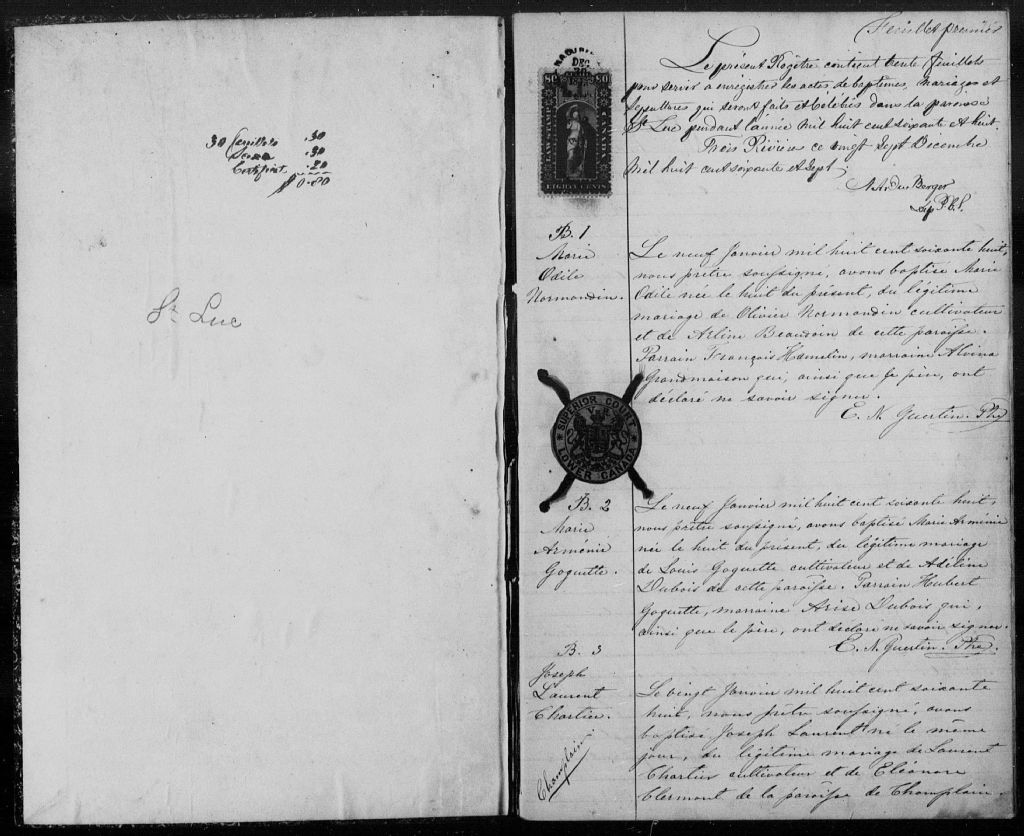 30 feuillets .30
.30
Certificat .20
$0.80
St Luc
Feuillet premier
Le présent Régitre contient trente feuillets
pour servir a enrégistrer les actes de baptemes, mariages et
sepultures qui seront faits et célébrés dans la paroisse
St Luc pendant l'année Mil huit cent soixante et huit.
Trois Rivières ce vingt Sept Decembre
Mil huit cent soixante et Sept
Berger
Dep P.C.S.
DEC
80 80
LAW STAMP
CANADA
EIGHTY CENTS
B. 1
Marie
Odile
Normandin.
Le neuf Janvier mil huit cent soixante huit,
nous prêtre soussigné, avons baptisé Marie
Odile née le huit du présent, du légitime
mariage de Olivier Normandin cultivateur
et de Arline Beaudoin de cette paroisse.
Parrain François Hamelin, marraine Alvina
Grandmaison qui, ainsi que le père, ont
déclaré ne savoir signer.
E. N. Guertin. Ptre
SUPERIOR COURT
V R
LOWER CANADA
B. 2
Marie
Arménie
Goquette.
Le neuf Janvier mil huit cent soixante huit,
nous prêtre soussigné, avons baptisé Marie Arménie
née le huit du présent, du légitime mariage
de Louis Goquette cultivateur et de Adéline
Dubois de cette paroisse. Parrain Hubert
Goquette, marraine Arise Dubois qui,
ainsi que le père, ont déclaré ne savoir signer.
E. N. Guertin. Ptre.
B. 3
Joseph
Laurent
Chartier.
Champlain.
Le vingt Janvier mil huit cent soixante
huit, nous prêtre soussigné, avons
baptisé Joseph Laurent né le même
jour, du légitime mariage de Laurent
Chartier cultivateur et de Eléonore
Clermont de la paroisse de Champlain.